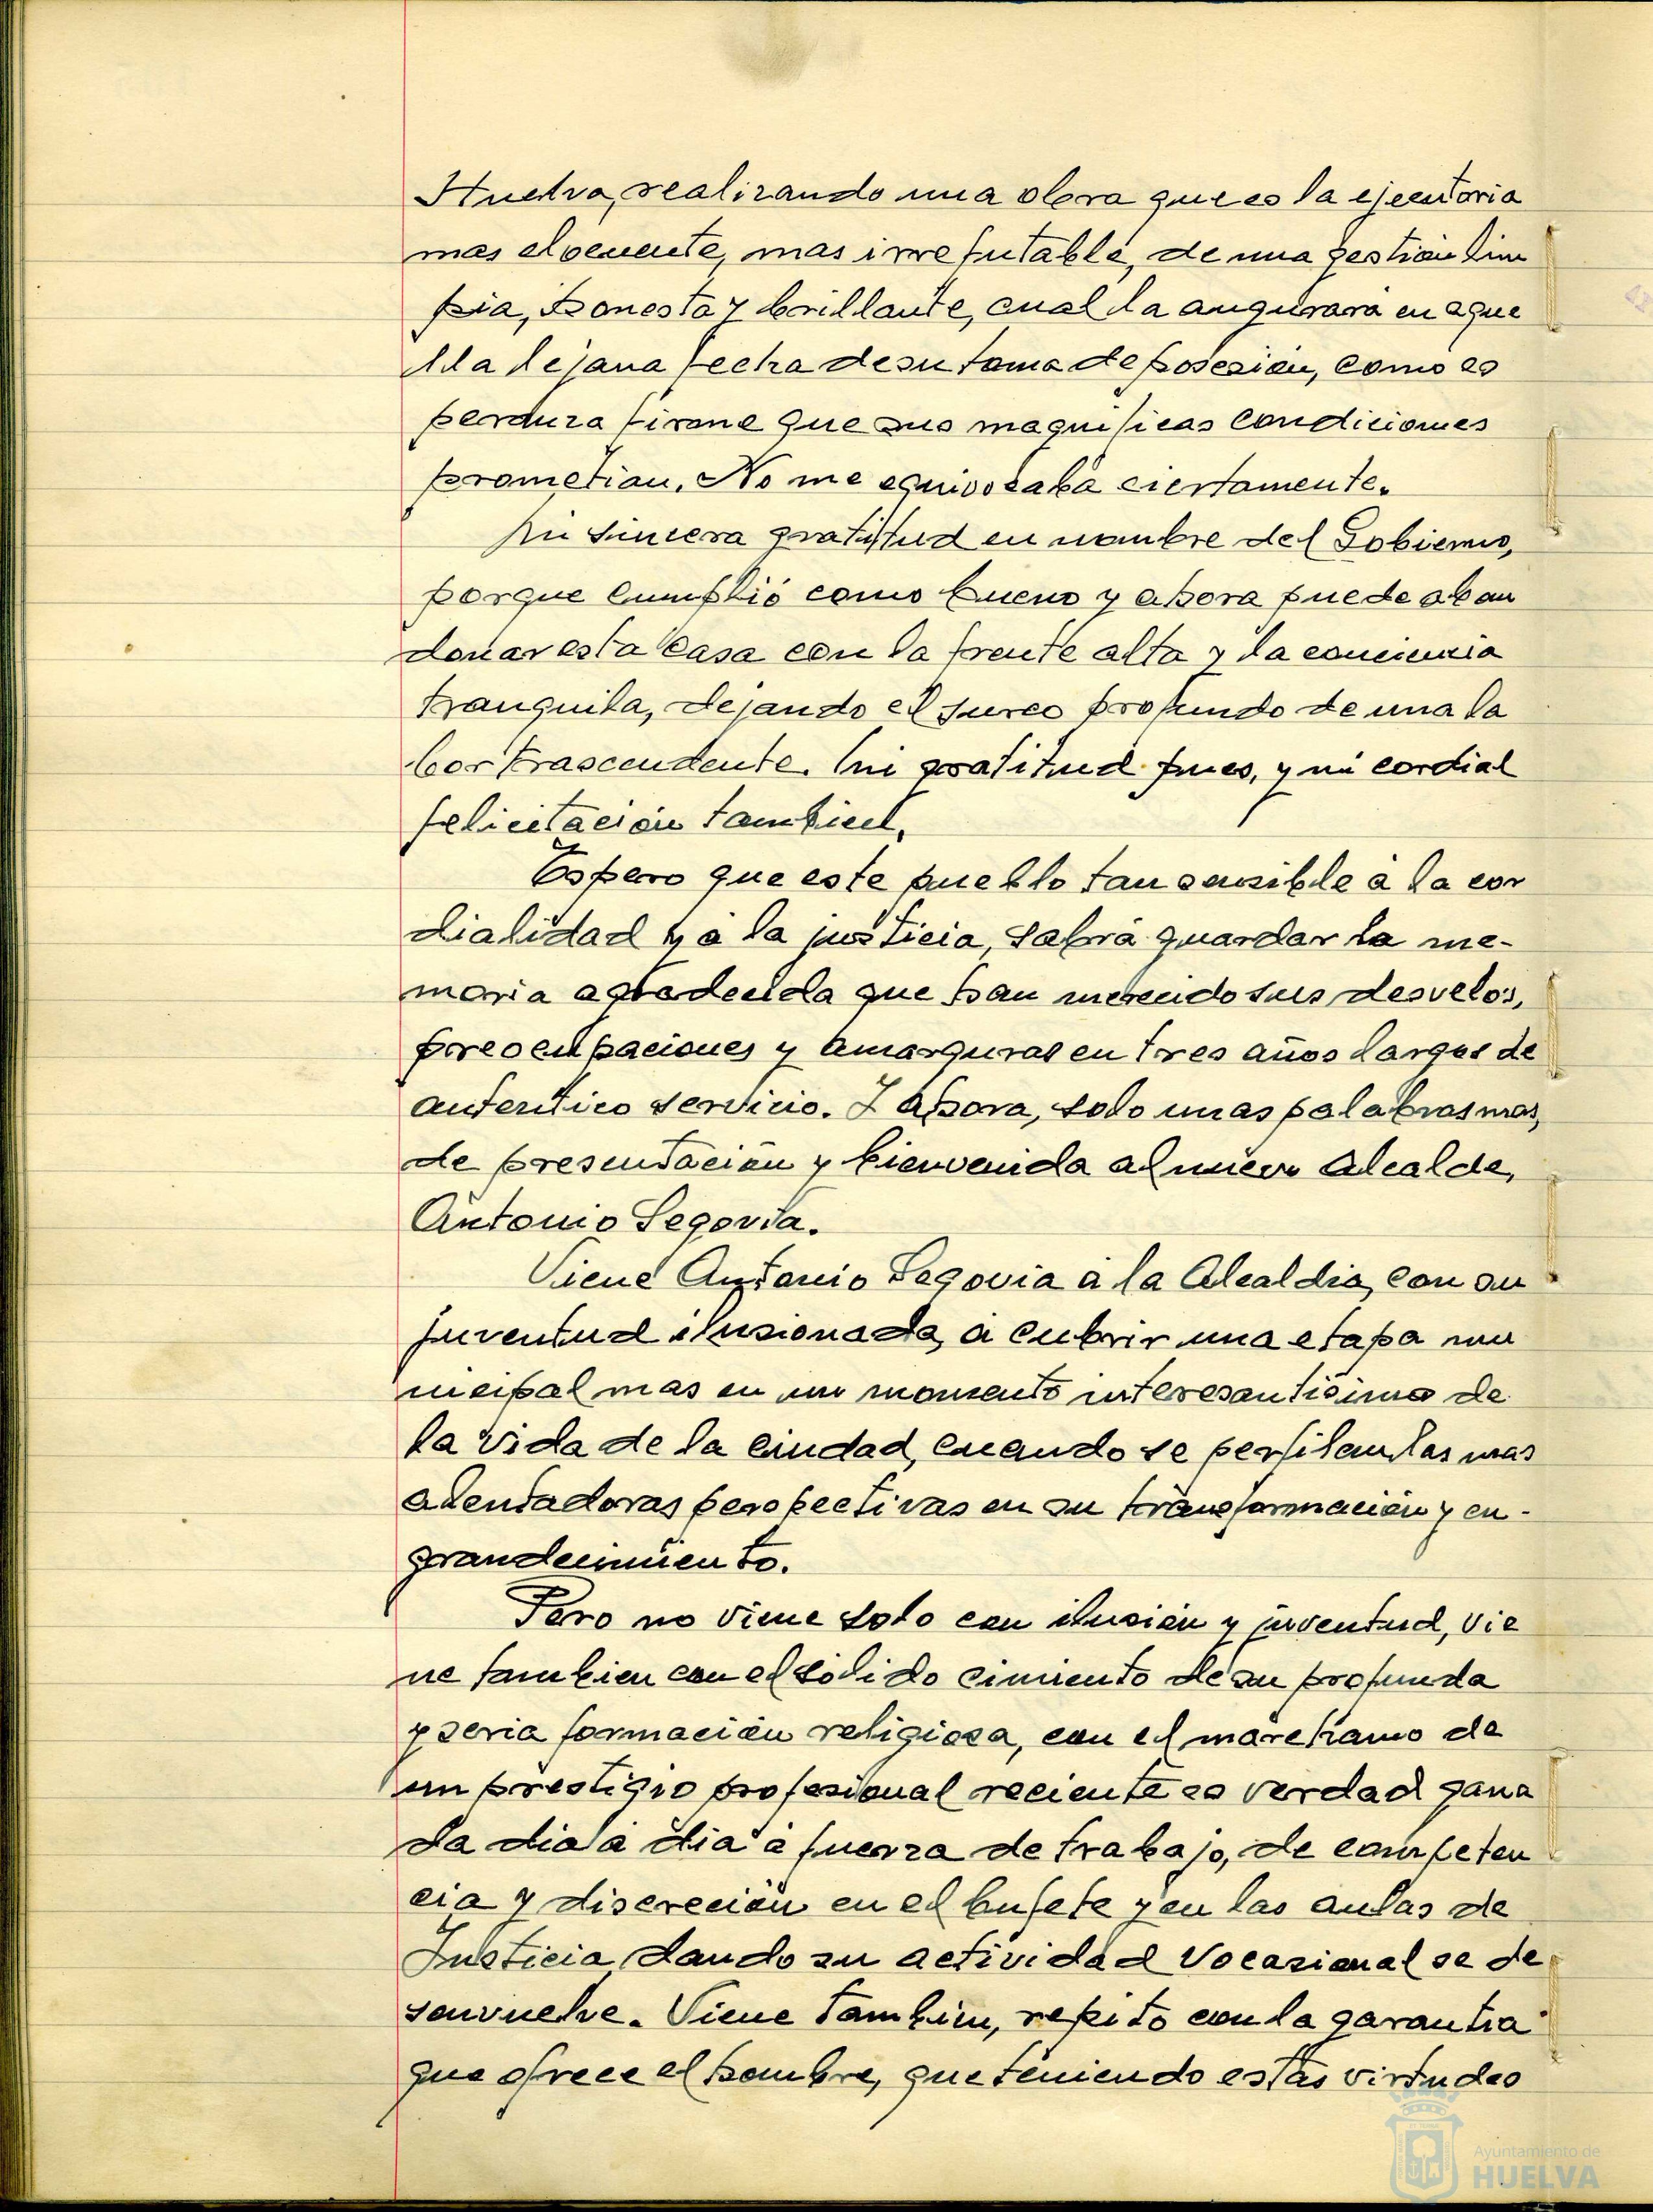 Huelva, realizando una obra que es la ejecutoria
mas elocuente, mas irrefutable, de una gestión lim
pia, honesta y brillante, cual la augurara en aque
lla lejana fecha de su toma de posesión, como es
perduza firme que sus magnificas condiciones
prometian. No me equivocaba ciertamente.
Mi sincera gratitud en nombre del Gobierno,
porque cumplió como bueno y ahora puede aban
donar esta Casa con la frente alta y la conciencia
tranquila, dejando el surco profundo de una la
bor trascendente. Mi gratitud pues, y mi cordial
felicitación tambien.
Espero que este pueblo tan sensible á la cor
dialidad y á la justicia, sabrá guardar la me-
moria agradecida que han merecido sus desvelos,
preocupaciones y amarguras en tres años largos de
autentico servicio. Y ahora, solo unas palabras mas,
de presentación y bienvenida al nuevo Alcalde,
Antonio Segovia.
Viene Antonio Segovia á la Alcaldia, con su
juventud ilusionada, á cubrir una etapa mu
nicipal mas en un momento interesantisimo de
la vida de la ciudad, cuando se perfilan las mas
alentadoras perspectivas en su transformación y en-
grandecimiento.
Pero no viene solo con ilusión y juventud, vie
ne tambien con el sólido cimiento de su profunda
y seria formación religiosa, con el marchamo de
un prestigio profesional reciente es verdad gana
da dia á dia á fuerza de trabajo, de competen
cia y discreción en el bufete y en las aulas de
Justicia dando su actividad vocasional se de
senvuelve. Viene tambien, repito con la garantia
que ofrece el hombre, que teniendo estas virtudes
Ayuntamiento de
HUELVA